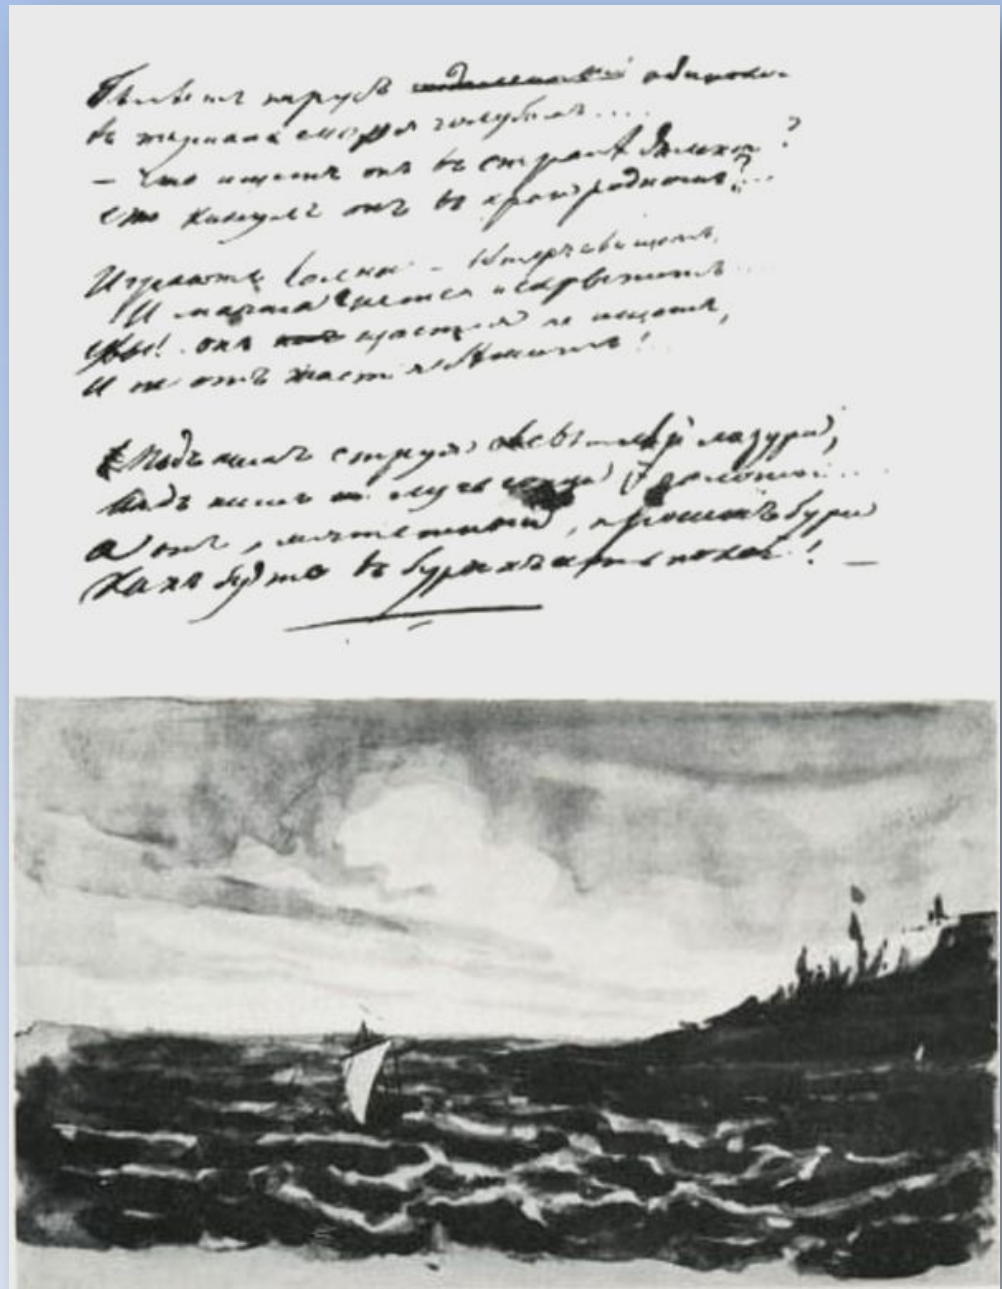 Бѣлѣетъ парусъ одинокой
Въ туманѣ моря голубомъ....
— Что ищетъ онъ въ странѣ далекой?
Что кинулъ онъ въ краю родномъ?...
Играютъ волны – вѣтеръ свищетъ,
И мачта гнется и скрыпитъ...
Увы! онъ щастія не ищетъ,
И не отъ щастія бѣжитъ!
Подъ нимъ струя свѣтлѣй лазури,
Надъ нимъ лучь солнца золотой...
А онъ, мятежный, проситъ бури
Какъ будто въ буряхъ есть покой! —